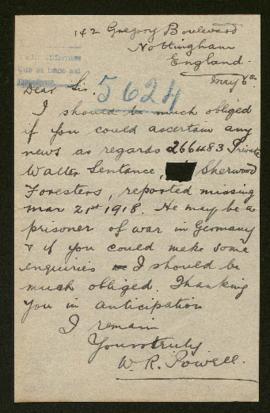 142 Gregory Boulevard
Nottingham
England.
May 6th
5624
Dear Sir.
I should be much obliged
if you could ascertain any
news as regards 266483 Private
Walter Sentance, Sherwood
Foresters, reported missing
Mar 21st 1918. He may be a
prisoner of war in Germany
& if you could make some
enquiries – I should be
much obliged. Thanking
you in anticipation
I remain
Yours truly
W. R. Powell.